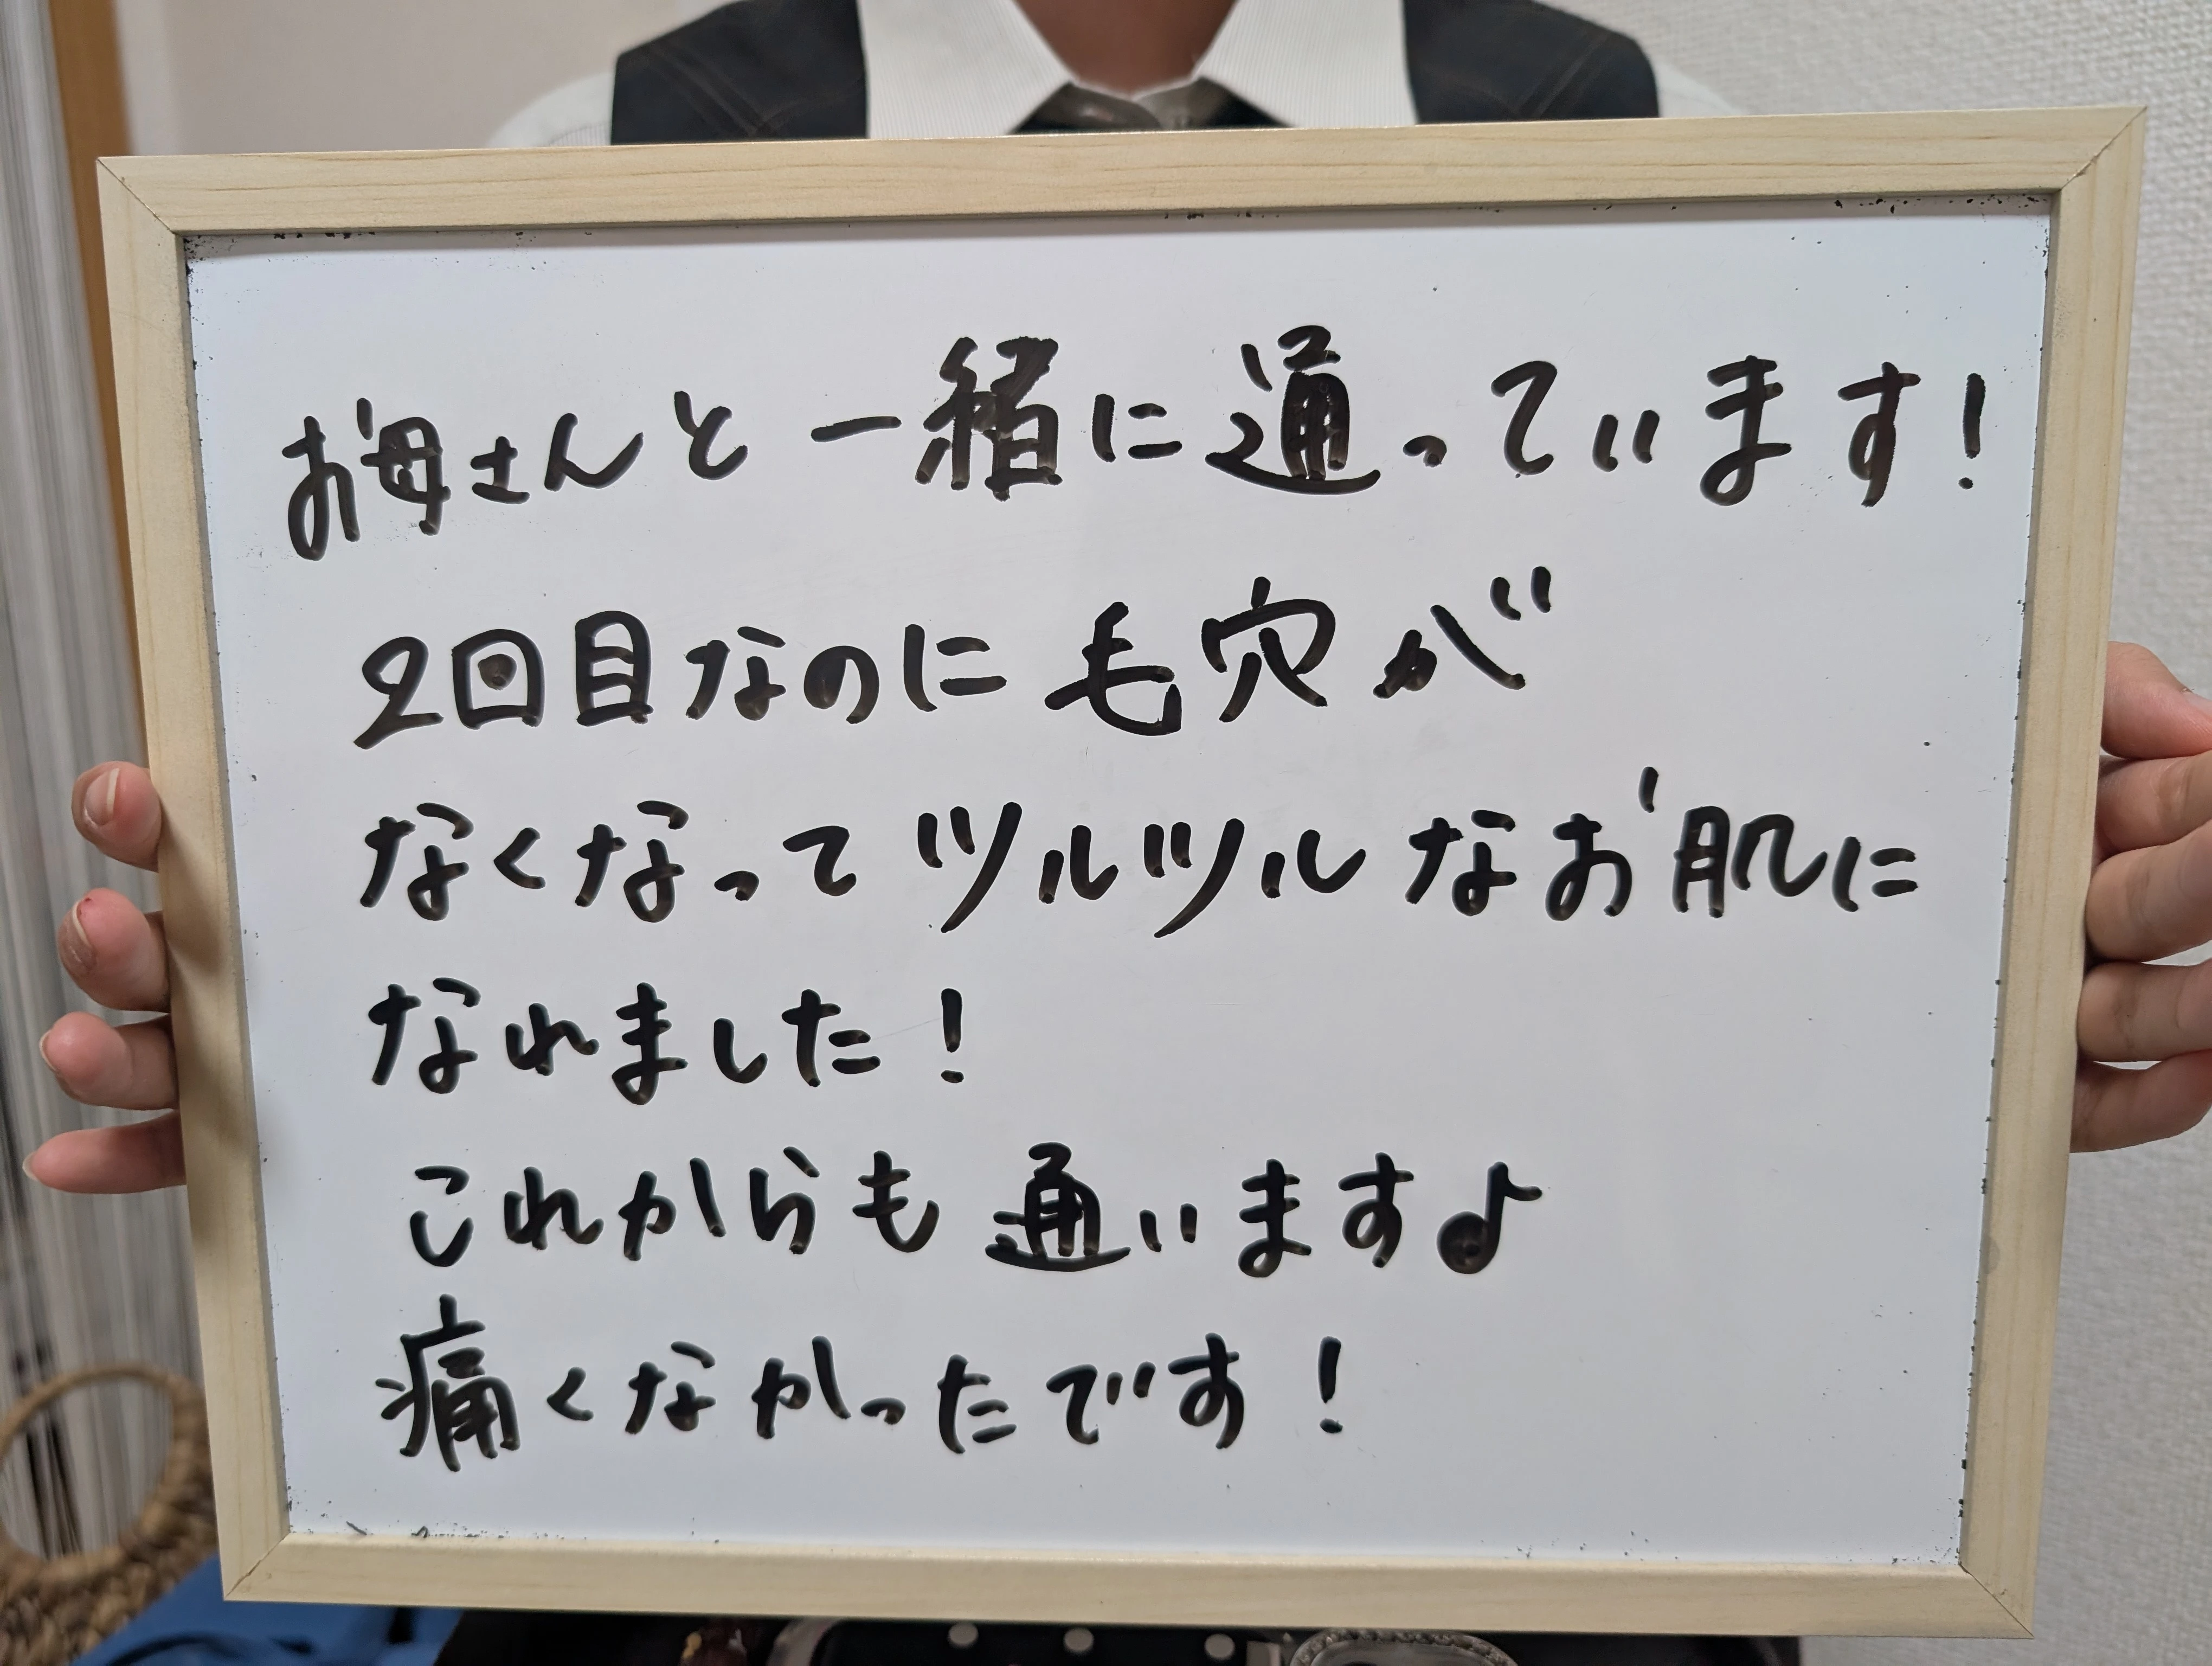 お母さんと一緒に通っています!
2回目なのに毛穴が
なくなってツルツルなお肌に
なれました!
これからも通います♪
痛くなかったです!